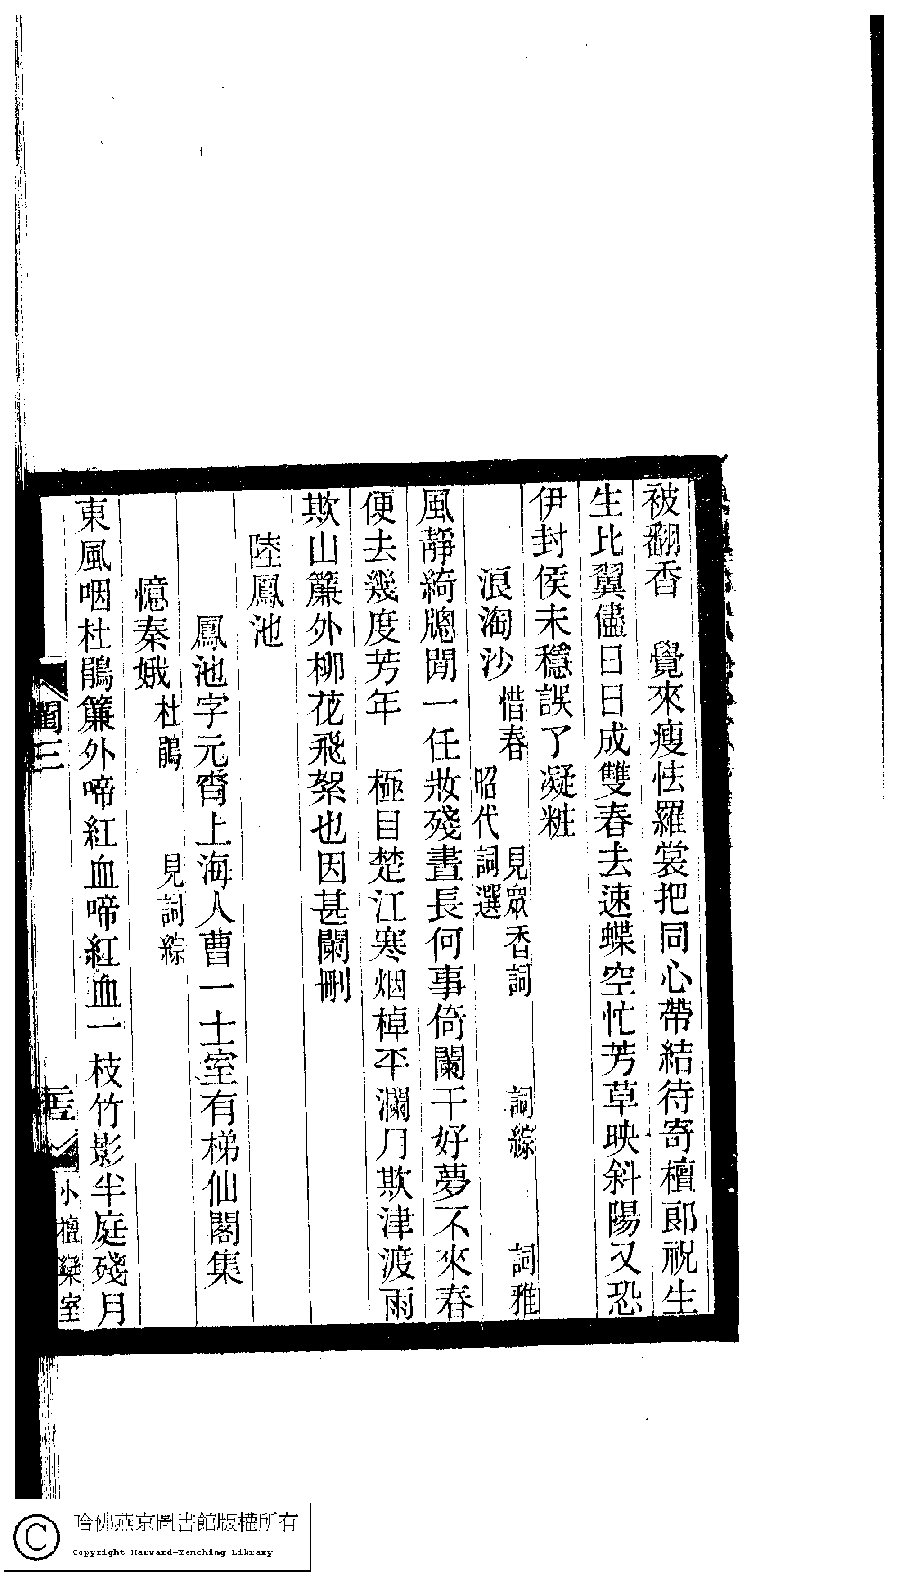 被翻香　覺來瘦怯羅裳把同心帶結待寄檀郎祝生
生比翼儘日日成雙春去速蝶空忙芳草映斜陽又恐
伊封侯未穩誤了凝粧
浪淘沙 惜春 見眾香詞 詞綜 詞雅
昭代詞選
風靜綺牕閒一任妝殘晝長何事倚闌干好夢不來春
便去幾度芳年　極目楚江寒烟棹平瀾月欺津渡雨
欺山簾外柳花飛絮也因甚闌刪
陸鳳池
鳳池字元霄上海人曹一士室有梯仙閣集
憶秦娥 杜鵑 見詞綜
東風咽杜鵑簾外啼紅血啼紅血一枝竹影半庭殘月
閨三
小檀欒室
哈佛燕京圖書館版權所有
Copyright Harvard-Yenching Library